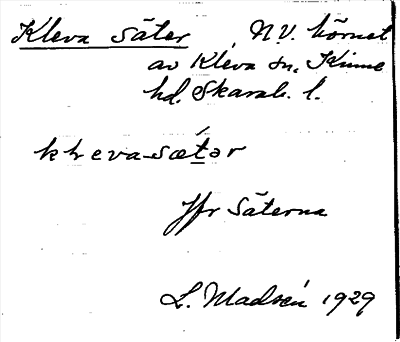 Kleva säter N.V. hörnet
av Kleva sn, Kinne
hd. Skarab. l.
kleva sætər
Jfr Säterna
L. Madsén 1929